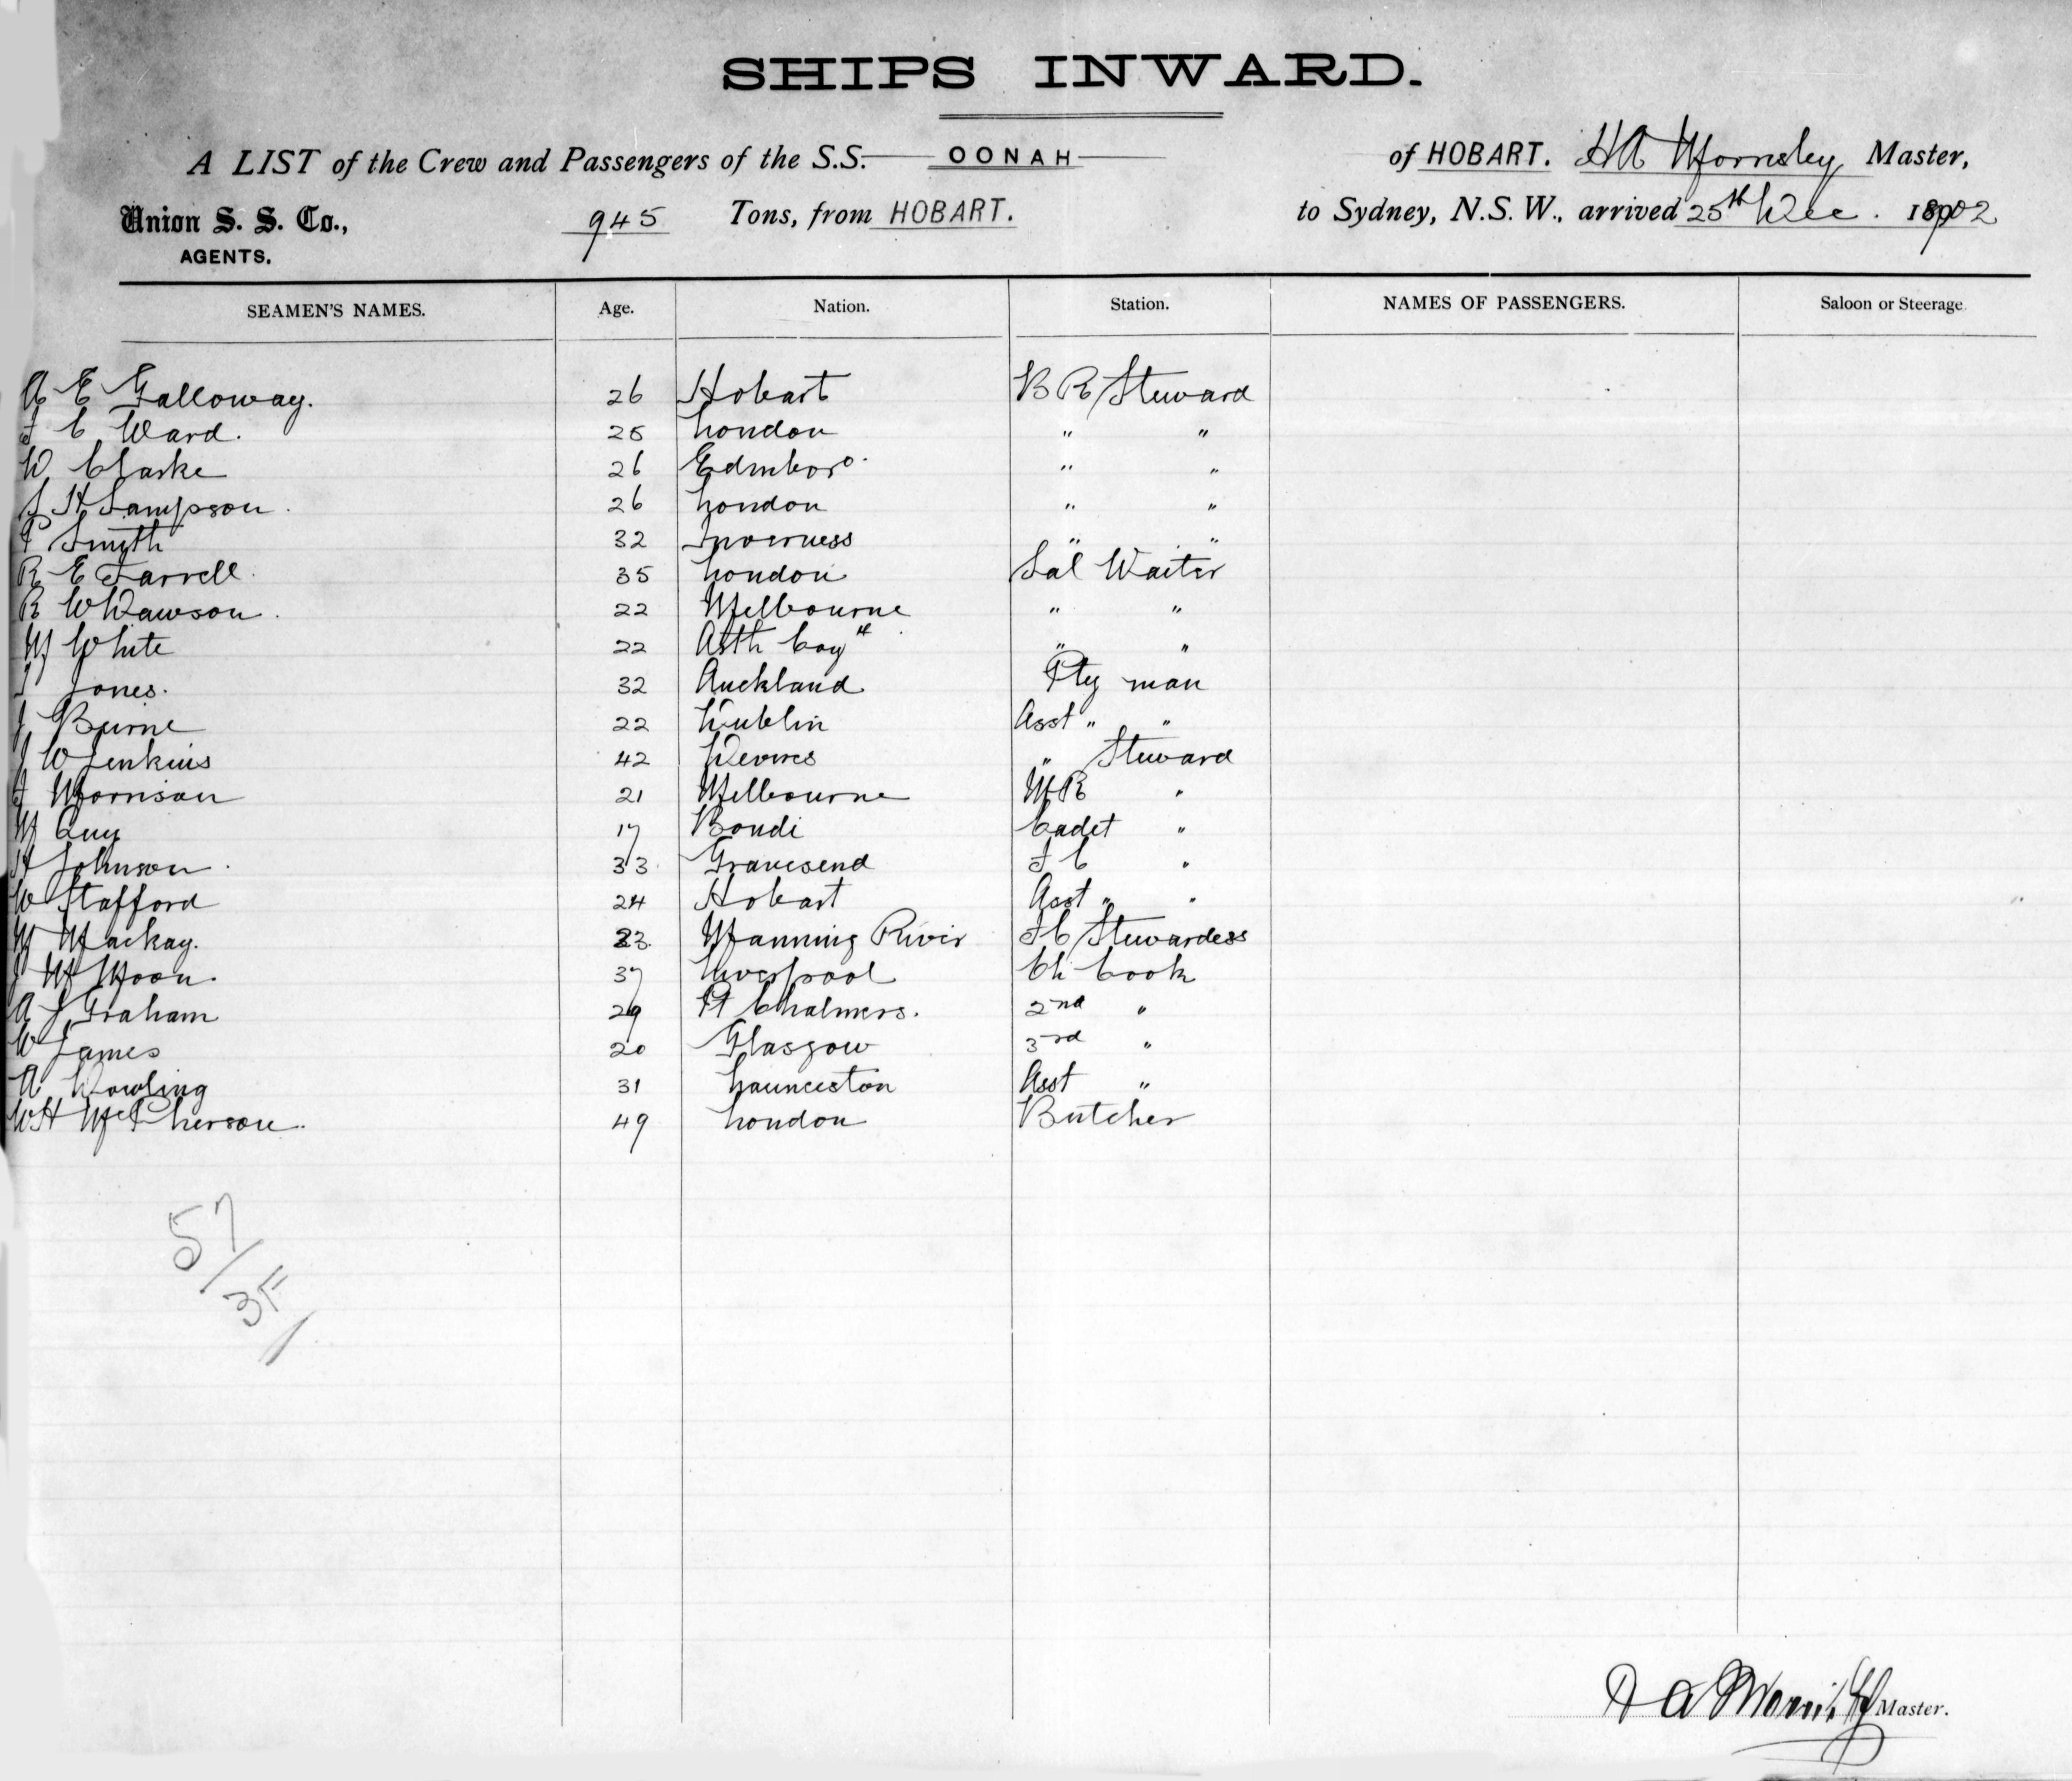 SHIPS INWARD.
A LIST of the Crew and Passengers of the S.S. OONAH of HOBART. H A Mornsley Master,
Union S. S. Co., AGENTS. 945 Tons, from HOBART. to Sydney, N.S.W., arrived 25th Dec. 1902
SEAMEN'S NAMES. Age. Nation. Station. NAMES OF PASSENGERS. Saloon or Steerage.
A E Galloway. 26 Hobart B R Steward
F C Ward. 25 London " "
W Clarke 26 Edinboro. " "
S H Sampson. 26 London " "
P Smyth 32 Inverness " "
R E Farrell. 35 London Sal Waiter
R W Dawson. 22 Melbourne " "
M White 22 " "
Jones. 32 Auckland Pty man
J Byrne 22 Dublin Asst " "
J W Jenkins 42 Devizes " Steward
F Morrison 21 Melbourne M R "
M Guy 17 Bondi Cadet "
H Johnson. 33 Gravesend F C "
W Stafford 24 Hobart Asst " "
M Mackay. 23. Manning River F C Stewardess
J M Moon. 37 Liverpool Ch Cook
A J Graham 29 Pt Chalmers. 2nd "
W James 20 Glasgow 3rd "
A Dowling 31 Launceston Asst "
W H McPherson. 49 London Butcher
57/3F/
Master.